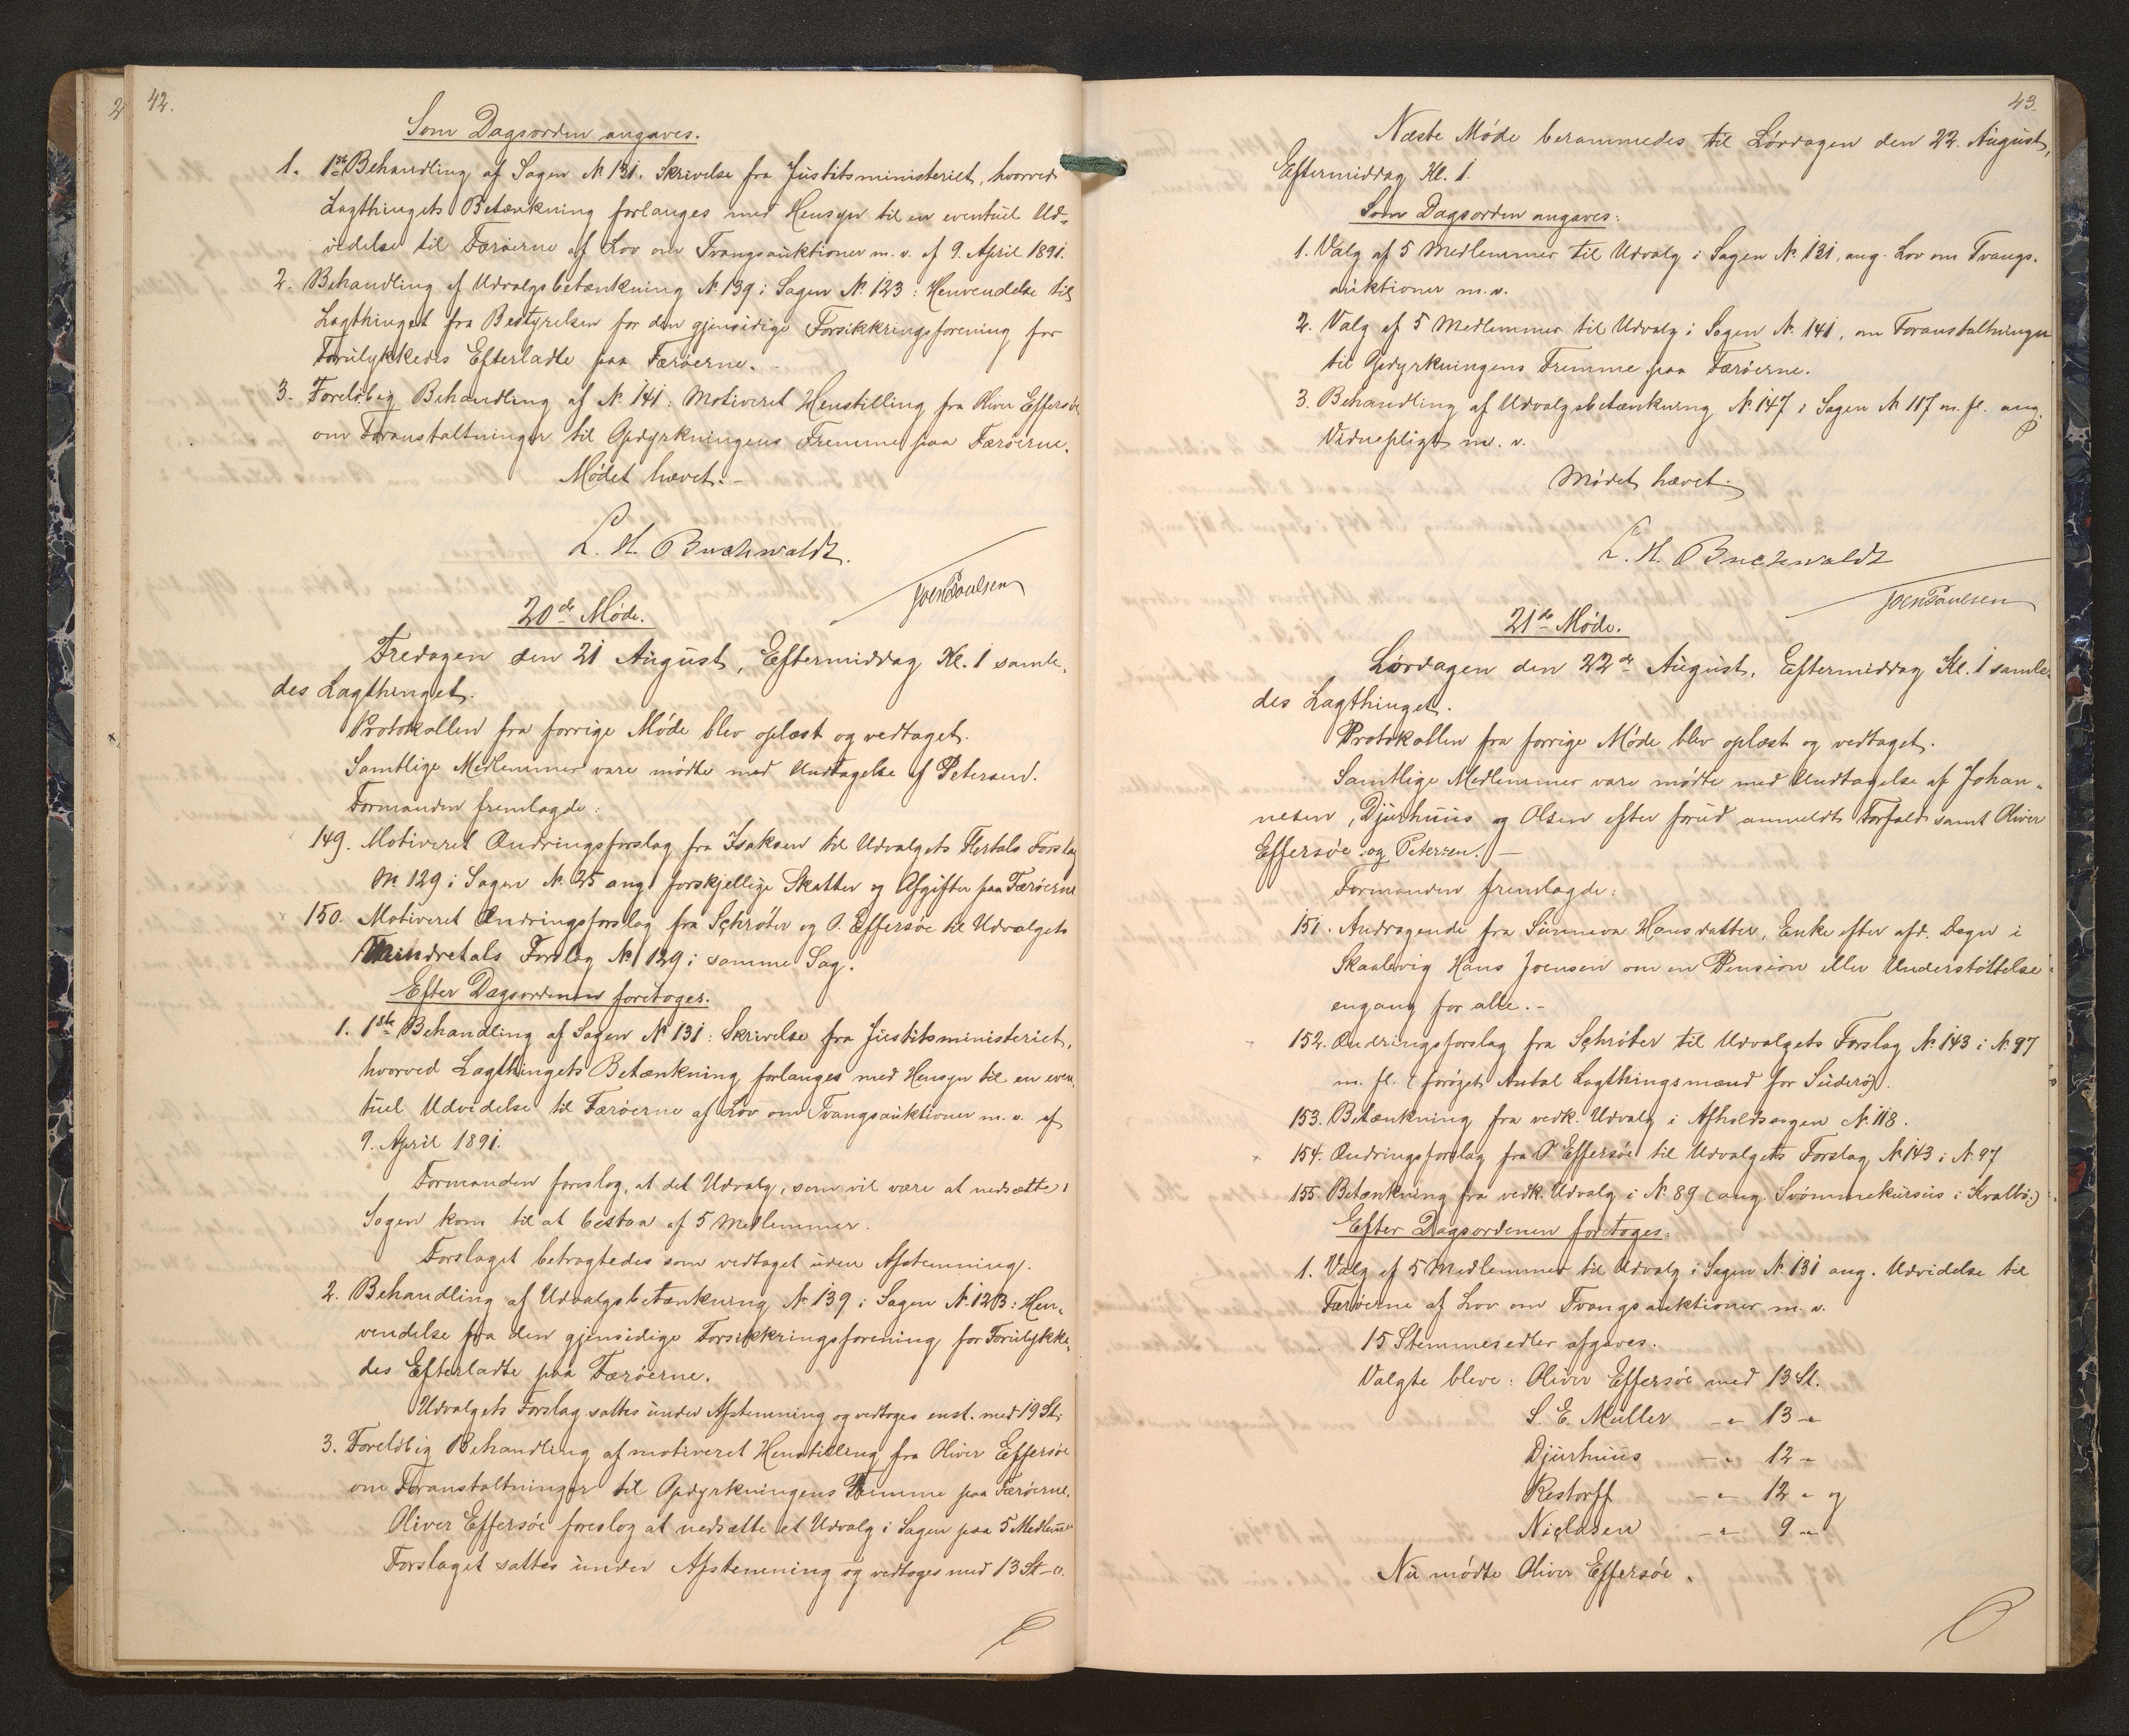 42.
Som Dagsorden angaves.
1. 1ste Behandling af Sagen № 131. Skrivelse fra Justitsministeriet, hvorved
Lagthingets Betænkning forlanges med Hensyn til en eventuel Ud-
videlse til Færøerne af Lov om Tvangsauktioner m. v. af 9. April 1891.
2. Behandling af Udvalgsbetænkning № 139 i Sagen № 123: Henvendelse til
Lagthinget fra Bestyrelsen for den gjensidige Forsikkringsforening for
Forulykkedes Efterladte paa Færøerne.
3. Foreløbig Behandling af № 141: Motiveret Henstilling fra Oliver Effersøe
om Foranstaltninger til Opdyrkningens Fremme paa Færøerne.
Mødet hævet.-
L. H. Buchwaldt.
Joen Poulsen
20de Møde.
Fredagen den 21 August, Eftermiddag Kl. 1 samle-
des Lagthinget.
Protokollen fra forrige Møde blev oplæst og vedtaget.
Samtlige Medlemmer vare mødte med Undtagelse af Petersen.
Formanden fremlagde:
149. Motiveret Ændringsforslag fra Isaksen til Udvalgets Flertals Forslag
№ 129 i Sagen № 25 ang. forskjellige Skatter og Afgifter paa Færøerne
150. Motiveret Ændringsforslag fra Schrøter og P. Effersøe til Udvalgets
Mindretals Forslag № 129 i samme Sag.
Efter Dagsordenen foretoges.
1. 1ste Behandling af Sagen № 131: Skrivelse fra Justitsministeriet,
hvorved Lagthingets Betænkning forlanges med Hensyn til en even-
tuel Udvidelse til Færøerne af Lov om Tvangsauktioner m. v. af
9. April 1891.
Formanden foreslog, at det Udvalg, som vil være at nedsætte i
Sagen kom til at bestaa af 5 Medlemmer.
Forslaget betragtedes som vedtaget uden Afstemning.
2. Behandling af Udvalgsbetænkning № 139 i Sagen № 123: Hen-
vendelse fra den gjensidige Forsikkringsforening for Forulykke-
des Efterladte paa Færøerne.
Udvalgets Forslag sattes under Afstemning og vedtoges enst. med 19 St.
3. Foreløbig Behandling af motiveret Henstilling fra Oliver Effersøe
om Foranstaltninger til Opdyrkningens Fremme paa Færøerne.
Oliver Effersøe foreslog at nedsætte et Udvalg i Sagen paa 5 Medlemmer
Forslaget sattes under Afstemning og vedtoges med 13 St - 0.
43.
Næste Møde berammedes til Lørdagen den 22. August,
Eftermiddag Kl. 1.
Som Dagsorden angaves:
1. Valg af 5 Medlemmer til Udvalg i Sagen № 131, ang. Lov om Tvangs-
auktioner m. v.
2. Valg af 5 Medlemmer til Udvalg i Sagen № 141, om Foranstaltninger
til Opdyrkningens Fremme paa Færøerne.
3. Behandling af Udvalgsbetænkning № 147 i Sagen № 117 m. fl. ang.
Vidnepligt m. v.
Mødet hævet.
L. H. Buchwaldt
Joen Poulsen
21de Møde.
Lørdagen den 22de August, Eftermiddag Kl. 1 samle-
des Lagthinget.
Protokollen fra forrige Møde blev oplæst og vedtaget.
Samtlige Medlemmer vare mødte med Undtagelse af Johan-
nesen, Djurhuus og Olsen efter forud anmeldt Forfald samt Oliver
Effersøe og Petersen. -
Formanden fremlagde:
151. Andragende fra Sunneva Hansdatter, Enke efter afd. Degn i
Skaalevig Hans Joensen om en Pension eller Understøttelse
engang for alle.-
152. Ændringsforslag fra Schrøter til Udvalgets Forslag № 143 i № 97
m. fl. (forøget Antal Lagthingsmænd for Suderø).
153. Betænkning fra vedk. Udvalg i Afholdssagen № 118.
154. Ændringsforslag fra P. Effersøe til Udvalgets Forslag № 143 i № 97
155. Betænkning fra vedk. Udvalg i № 89 (ang. Svømmekursus i Kvalbø.)
Efter Dagsordenen foretoges:
1. Valg af 5 Medlemmer til Udvalg i Sagen № 131 ang. Udvidelse til
Færøerne af Lov om Tvangsauktioner m. v.
15 Stemmesedler afgaves.
Valgte bleve: Oliver Effersøe med 13 St.
S. E. Müller - " - 13 - "
Djurhuus - " - 12 - "
Restorff - " - 12 - " og
Niclasen - " - 9 - "
Nu mødte Oliver Effersøe.